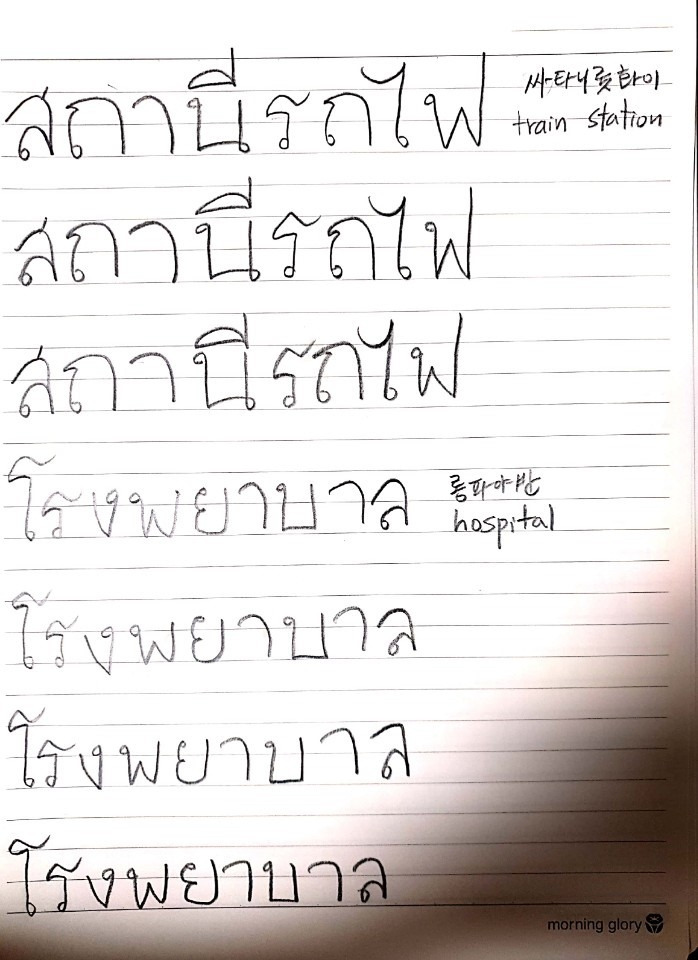 สถานีรถไฟ 싸-타니롯화이
train station
สถานีรถไฟ
สถานีรถไฟ
โรงพยาบาล 롱파야반
hospital
โรงพยาบาล
โรงพยาบาล
โรงพยาบาล
morning glory